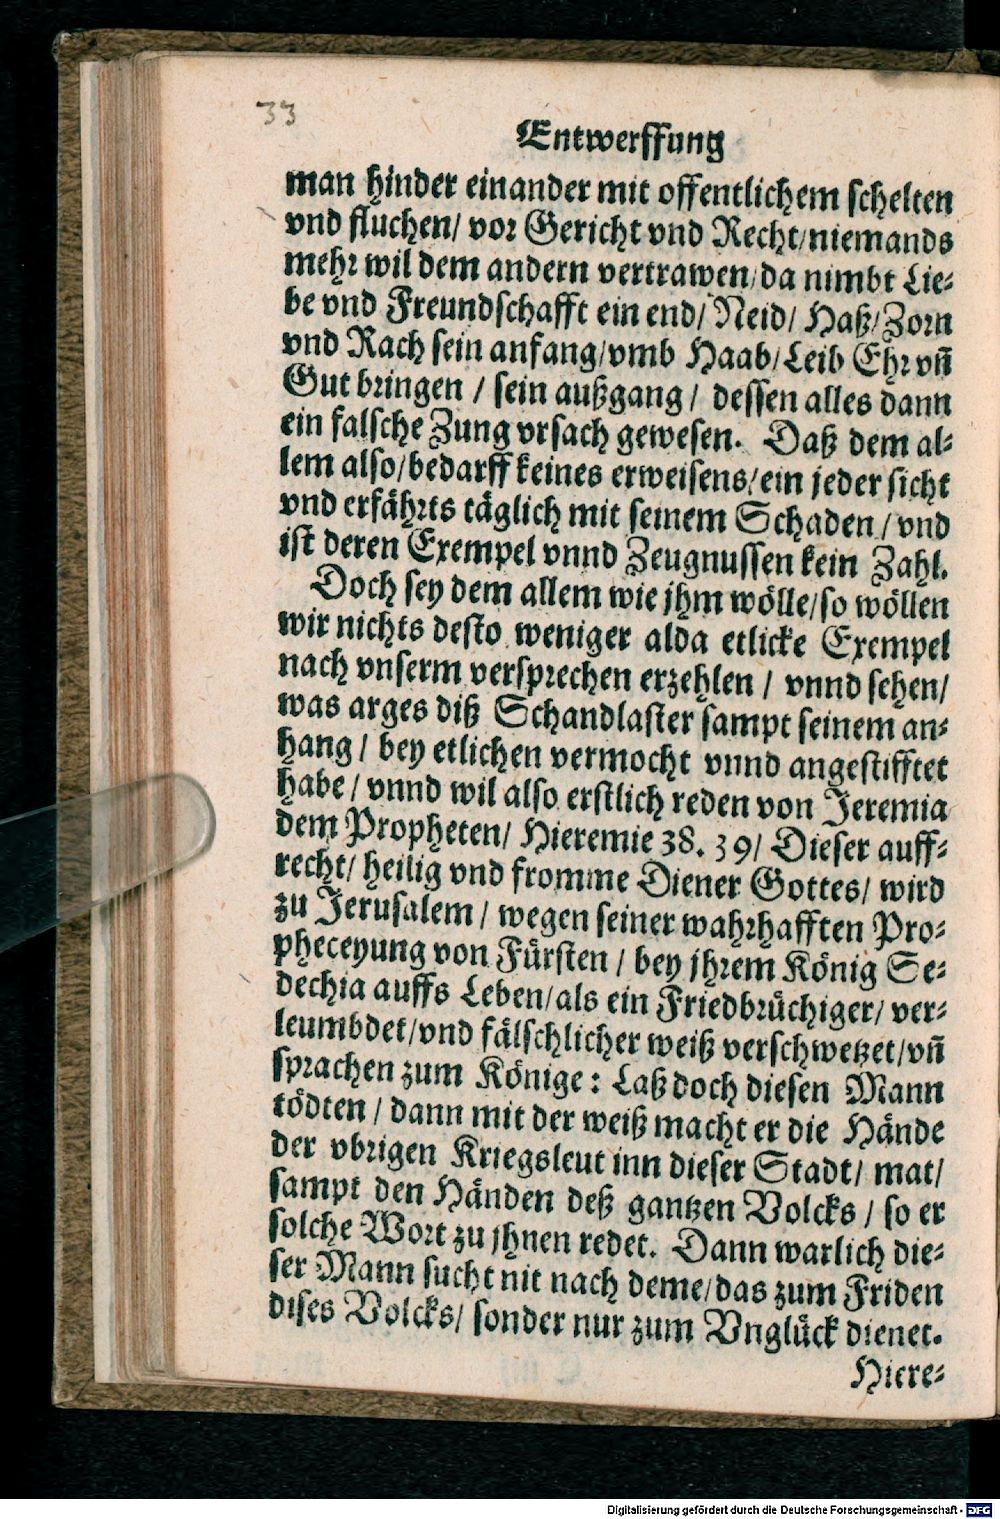 33
Entwerffung
man hinder einander mit offentlichem schelten
vnd fluchen/ vor Gericht vnd Recht/niemands
mehr wil dem andern vertrawen/da nimbt Lie-
be vnd Freundschafft ein end/ Neid/ Haß/Zorn
vnd Rach sein anfang/vmb Haab/Leib Ehr vñ
Gut bringen / sein außgang/ dessen alles dann
ein falsche Zung vrsach gewesen. Daß dem al-
lem also/bedarff keines erweisens/ein jeder sicht
vnd erfährts täglich mit seinem Schaden/vnd
ist deren Exempel vnnd Zeugnussen kein Zahl.
Doch sey dem allem wie jhm wölle/so wöllen
wir nichts desto weniger alda etlicke Exempel
nach vnserm versprechen erzehlen / vnnd sehen/
was arges diß Schandlaster sampt seinem an-
hang / bey etlichen vermocht vnnd angestifftet
habe / vnnd wil also erstlich reden von Jeremia
dem Propheten/ Hieremie 38. 39/ Dieser auff-
recht/ heilig vnd fromme Diener Gottes/ wird
zu Jerusalem / wegen seiner wahrhafften Pro-
pheceyung von Fürsten / bey jhrem König Se-
dechia auffs Leben/als ein Friedbrüchiger/ ver-
leumbdet/vnd fälschlicher weiß verschwetzet/vñ
sprachen zum Könige: Laß doch diesen Mann
tödten / dann mit der weiß macht er die Hände
der vbrigen Kriegsleut inn dieser Stadt/ mat/
sampt den Händen deß gantzen Volcks / so er
solche Wort zu jhnen redet. Dann warlich die-
ser Mann sucht nit nach deme/das zum Friden
dises Volcks/ sonder nur zum Vnglück dienet.
Hiere-
Digitalisierung gefördert durch die Deutsche Forschungsgemeinschaft - DFG